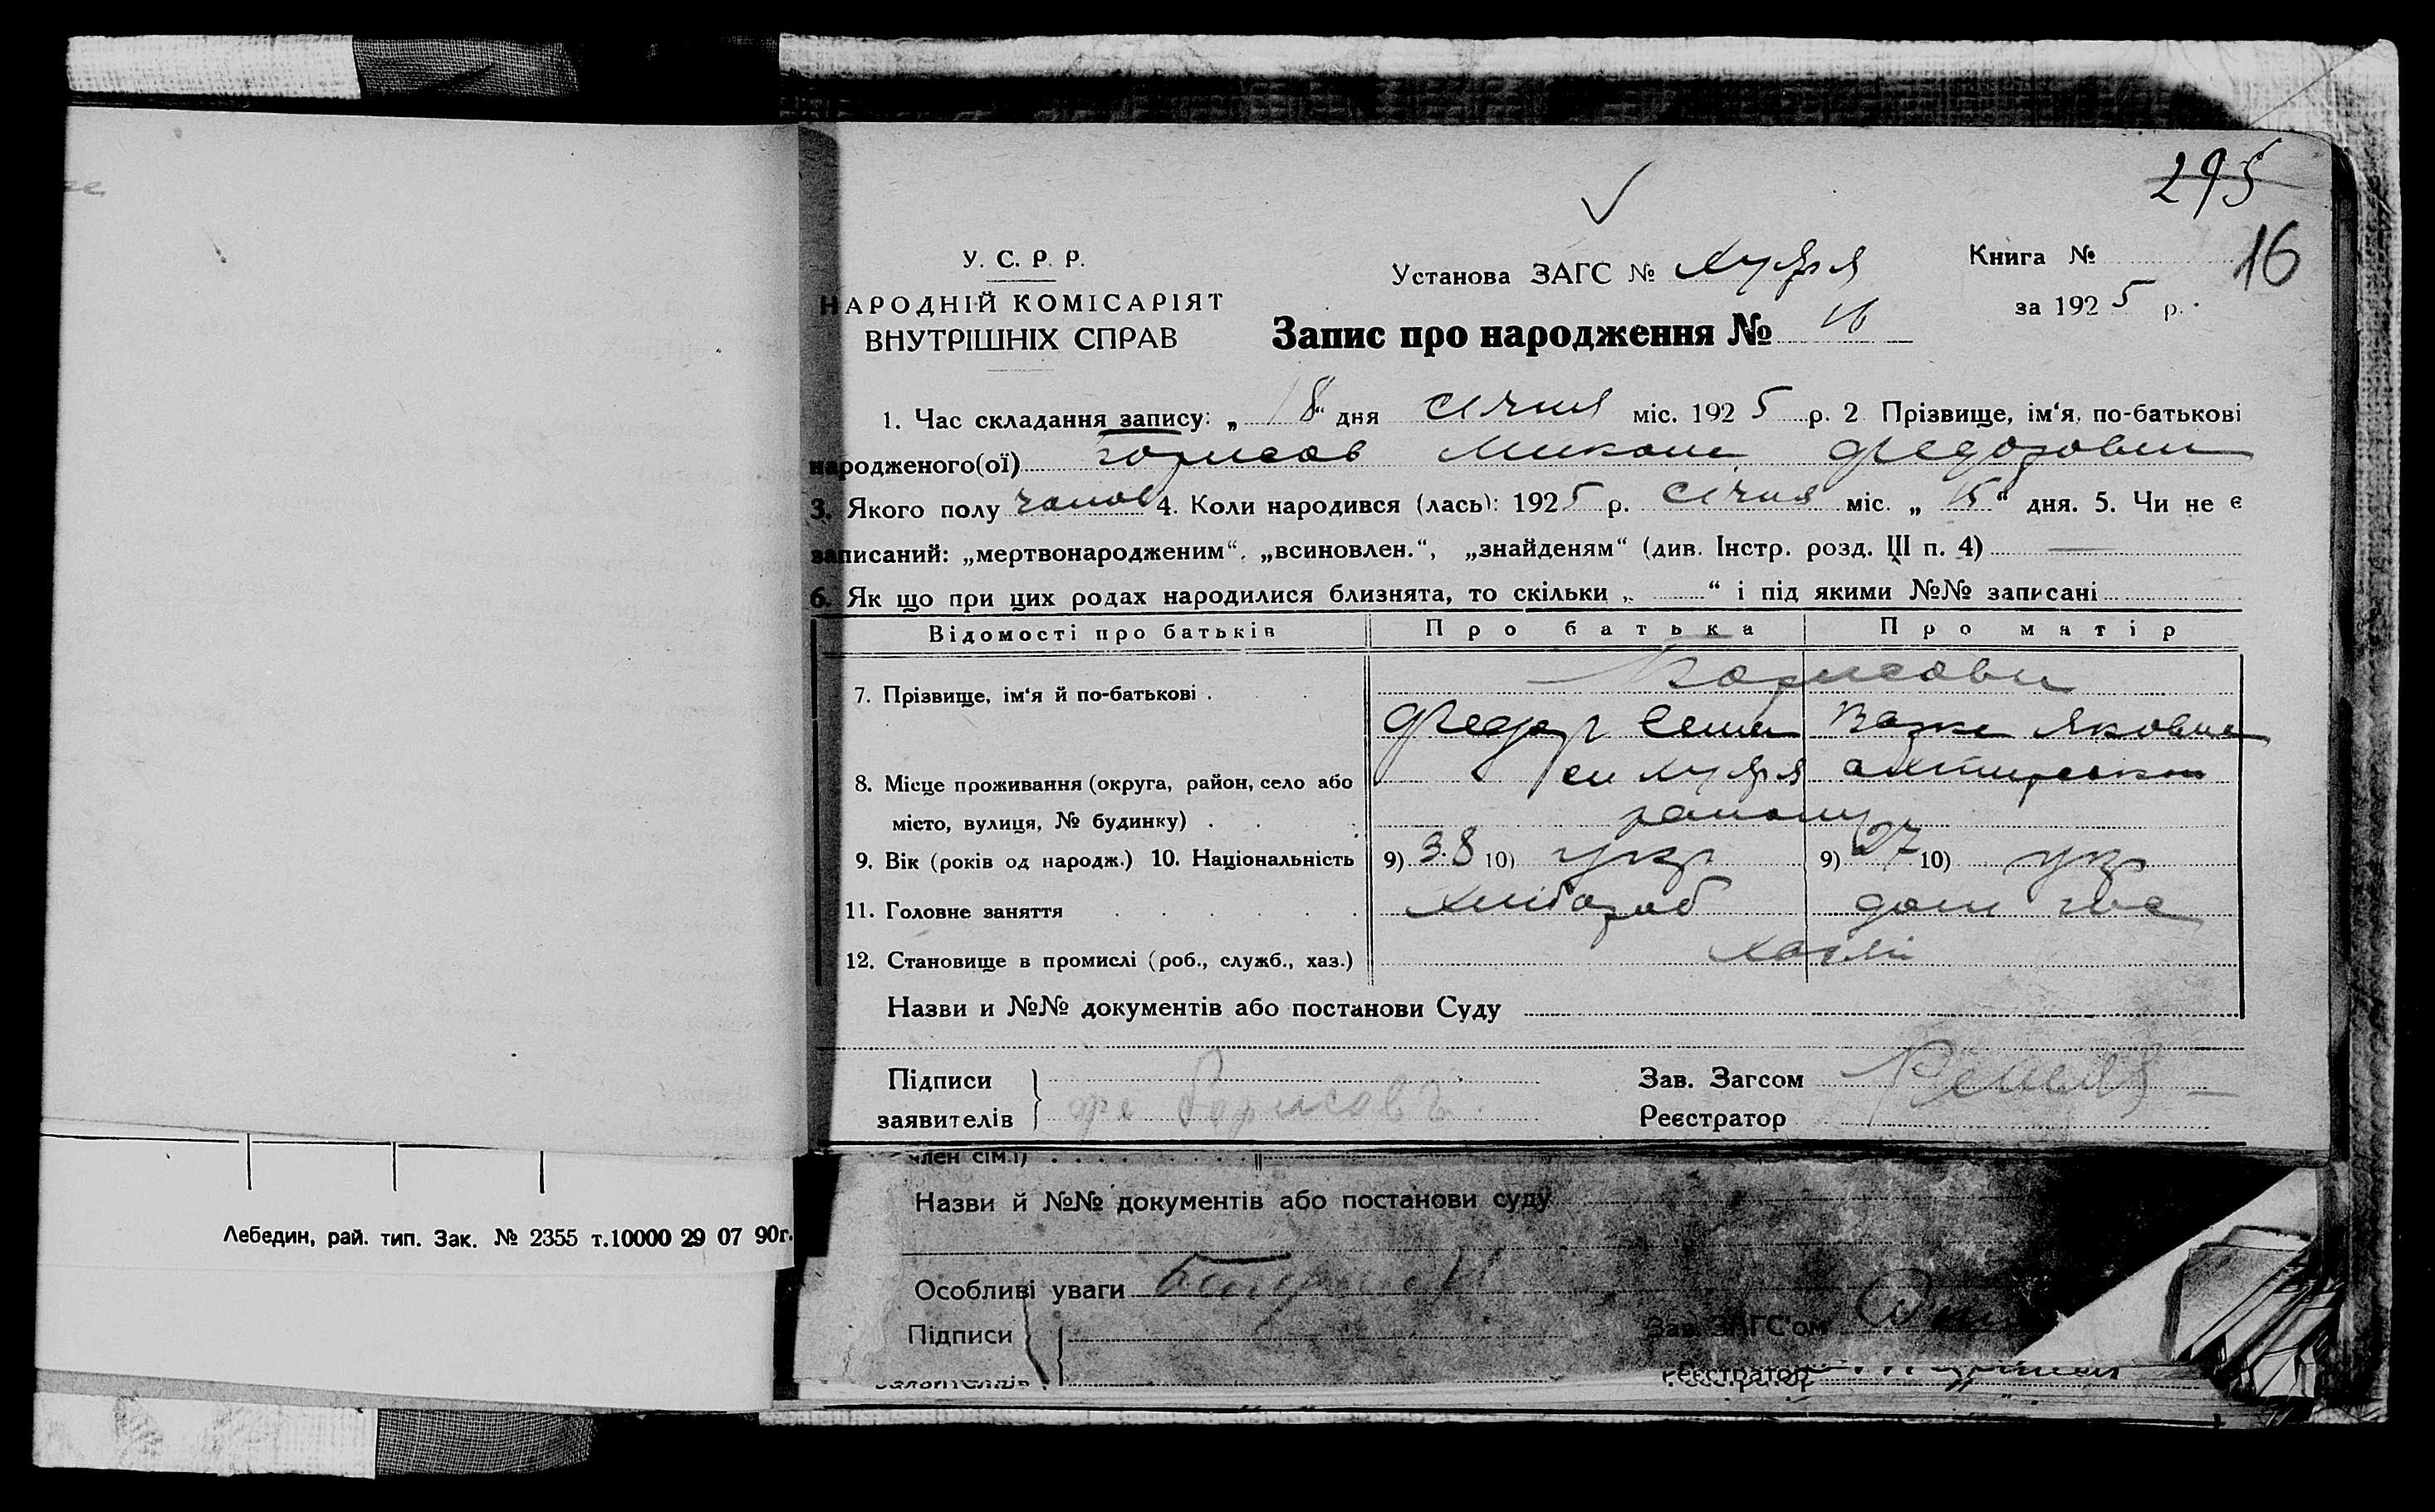 295
16
У. С. Р. Р.
НАРОДНІЙ КОМІСАРІЯТ
ВНУТРІШНІХ СПРАВ
Установа ЗАГС № Хухря
Книга №
за 1925 р.
Запис про народження № 16
1. Час складання запису: „18“ дня січня міс. 1925 р. 2 Прізвище, ім‘я, по-батькові
народженого(ої) Борисов Микола Федорович
3. Якого полу чолов 4. Коли народився (лась): 1925 р. січня міс. „15“ дня. 5. Чи не є
записаний: „мертвонародженим“, „всиновлен.“, „знайденям“ (див. Інстр. розд. ІІІ п. 4) —
6. Як що при цих родах народилися близнята, то скільки „ “ і під якими №№ записані
Відомості про батьків Про батька Про матір
7. Прізвище, ім‘я й по-батькові . Борисови
Федор Яковна
8. Місце проживання (округа, район, село або Хухря
місто, вулиця, № будинку) . району
9. Вік (років од народж.) 10. Національність 9) 38 10) укр 9) 27 10) укр
11. Головне заняття Хлібороб дом
12. Становище в промислі (роб., служб., хаз.)
Назви и №№ документів або постанови Суду
Підписи
заявителів Борисовъ
Зав. Загсом
Реєстратор
член сім.ї)
Назви й №№ документів або постанови суду
Особливі уваги
Підписи
Зав. ЗАГС'ом
Реєстратор
Лебедин, рай. тип. Зак. № 2355 т.10000 29 07 90г.